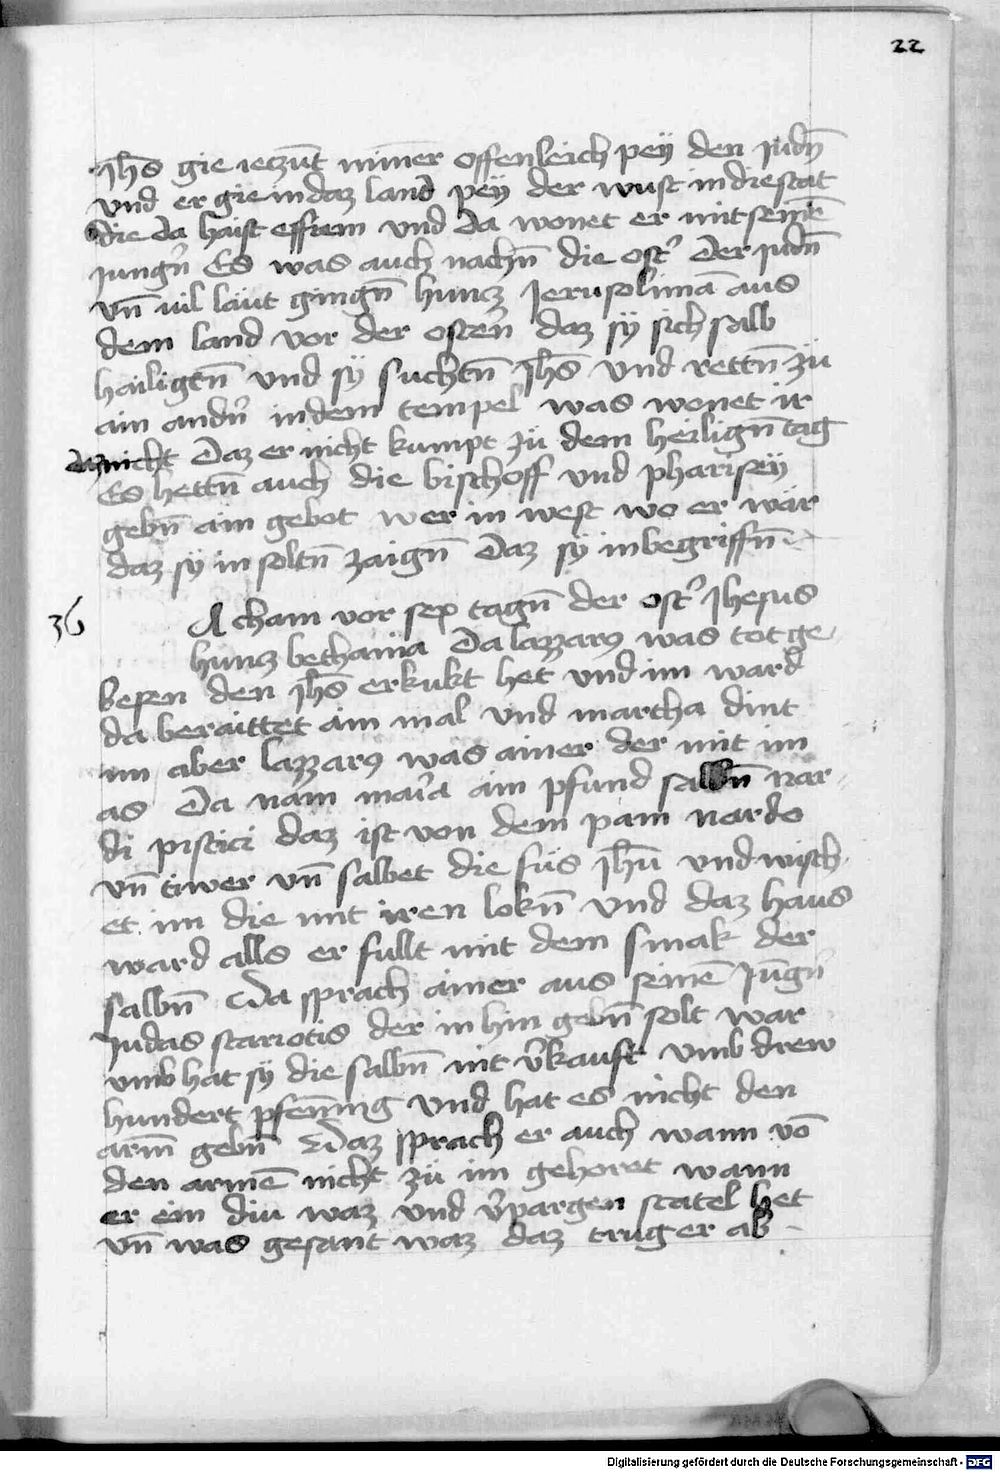 22
Jhs̄ gie ieczūt nim̄er offenleich pey den iudn̄
vnd er gie in daz land pey der wust in die stat
die da haist effrem vnd da wonet er mit seinē
iungn̄ Es was auch nachn̄ die ost̓ der iudn̄
vn̄ uil läut gingn̄ hincz Jerusolimā aus
dem land vor der ostern̄ daz sy sich salb
hailigtn̄ vnd sy suchtn̄ Jhs̄ vnd rettn̄ zü
ain andn̄ in dem tempel was wenet ir
daz nicht Daz er nicht kumpt zü dem heilign̄ tag
Es hettn̄ auch die bischoff vnd pharisey
gebn̄ ain gebot wer in west wo er wär
daz sy in soltn̄ zaign̄ Daz sy in begriffn̄
36
A cham vor sex tagn̄ der ost̓ Jhesus
hincz bethania Da lazzarꝰ was tot ge
besen den Jhs̄ erkukt het vnd im ward
da beraittet ain mal vnd martha dint
im aber lazzarꝰ was ainer der mit im
as Da nam maria ain pfund salbn̄ nar
di pistici daz ist von dem pam nardo
vn̄ tiwer vn̄ salbet die füs Jhū vnd wisch
et im die mit iren lokn̄ vnd daz haus
ward alls er fullt mit dem smak der
salbn̄ Da sprach ainer aus seinē Jūgn̄
Judas scariotis der in hin gebn̄ solt war
vmb hat sy die salbn̄ nit v̓kauft vmb drew
hundert pfen̄ing vnd hat es nicht den
arm̄ gebn̄ Daz sprach er auch wann vō
den armē nicht zü im gehoret wann
er ein diu waz vnd v̓pargen statel het
vn̄ was gesant waz daz trug er ab
Digitalisierung gefördert durch die Deutsche Forschungsgemeinschaft - DFG